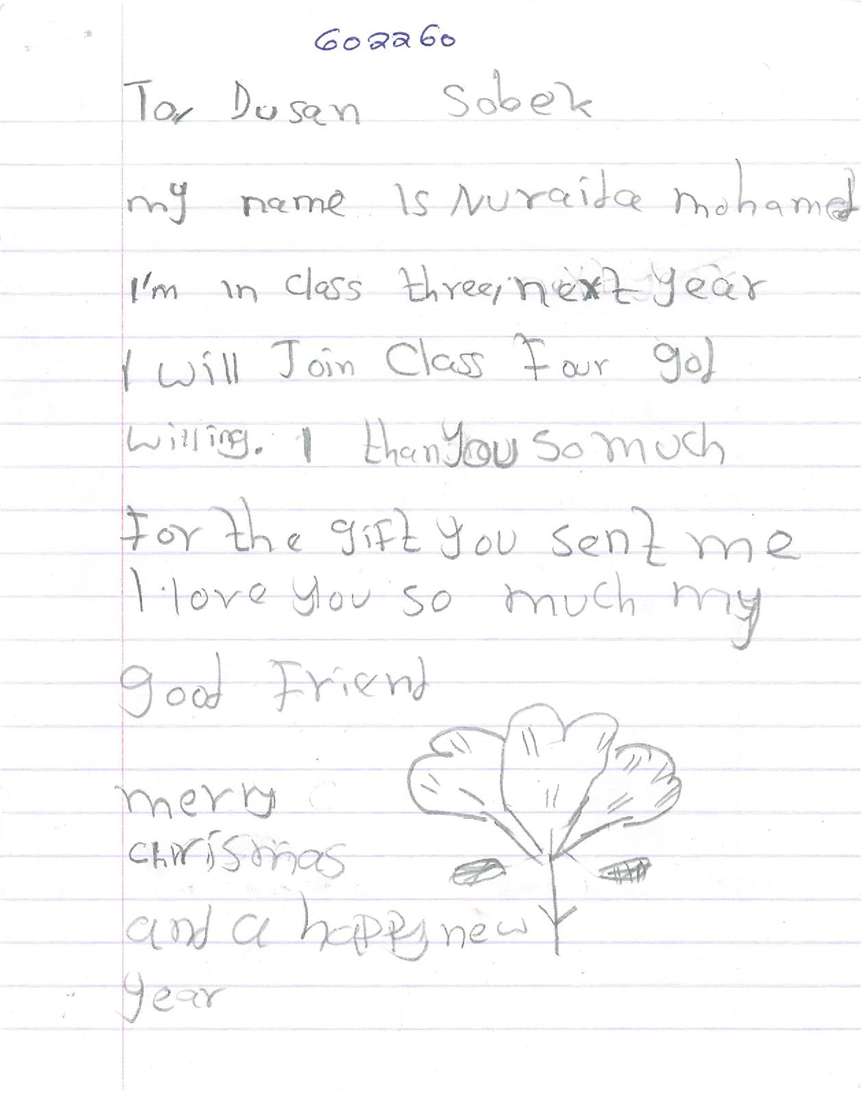 602260
To, Dusan Sobek
my name Is Nuraida mohamed
I'm in class three, next year
I will Join Class Four god
willing. I thanyou so much
For the gift you sent me
I love you so much my
good Friend
merry
chrismas
and a happy new
year